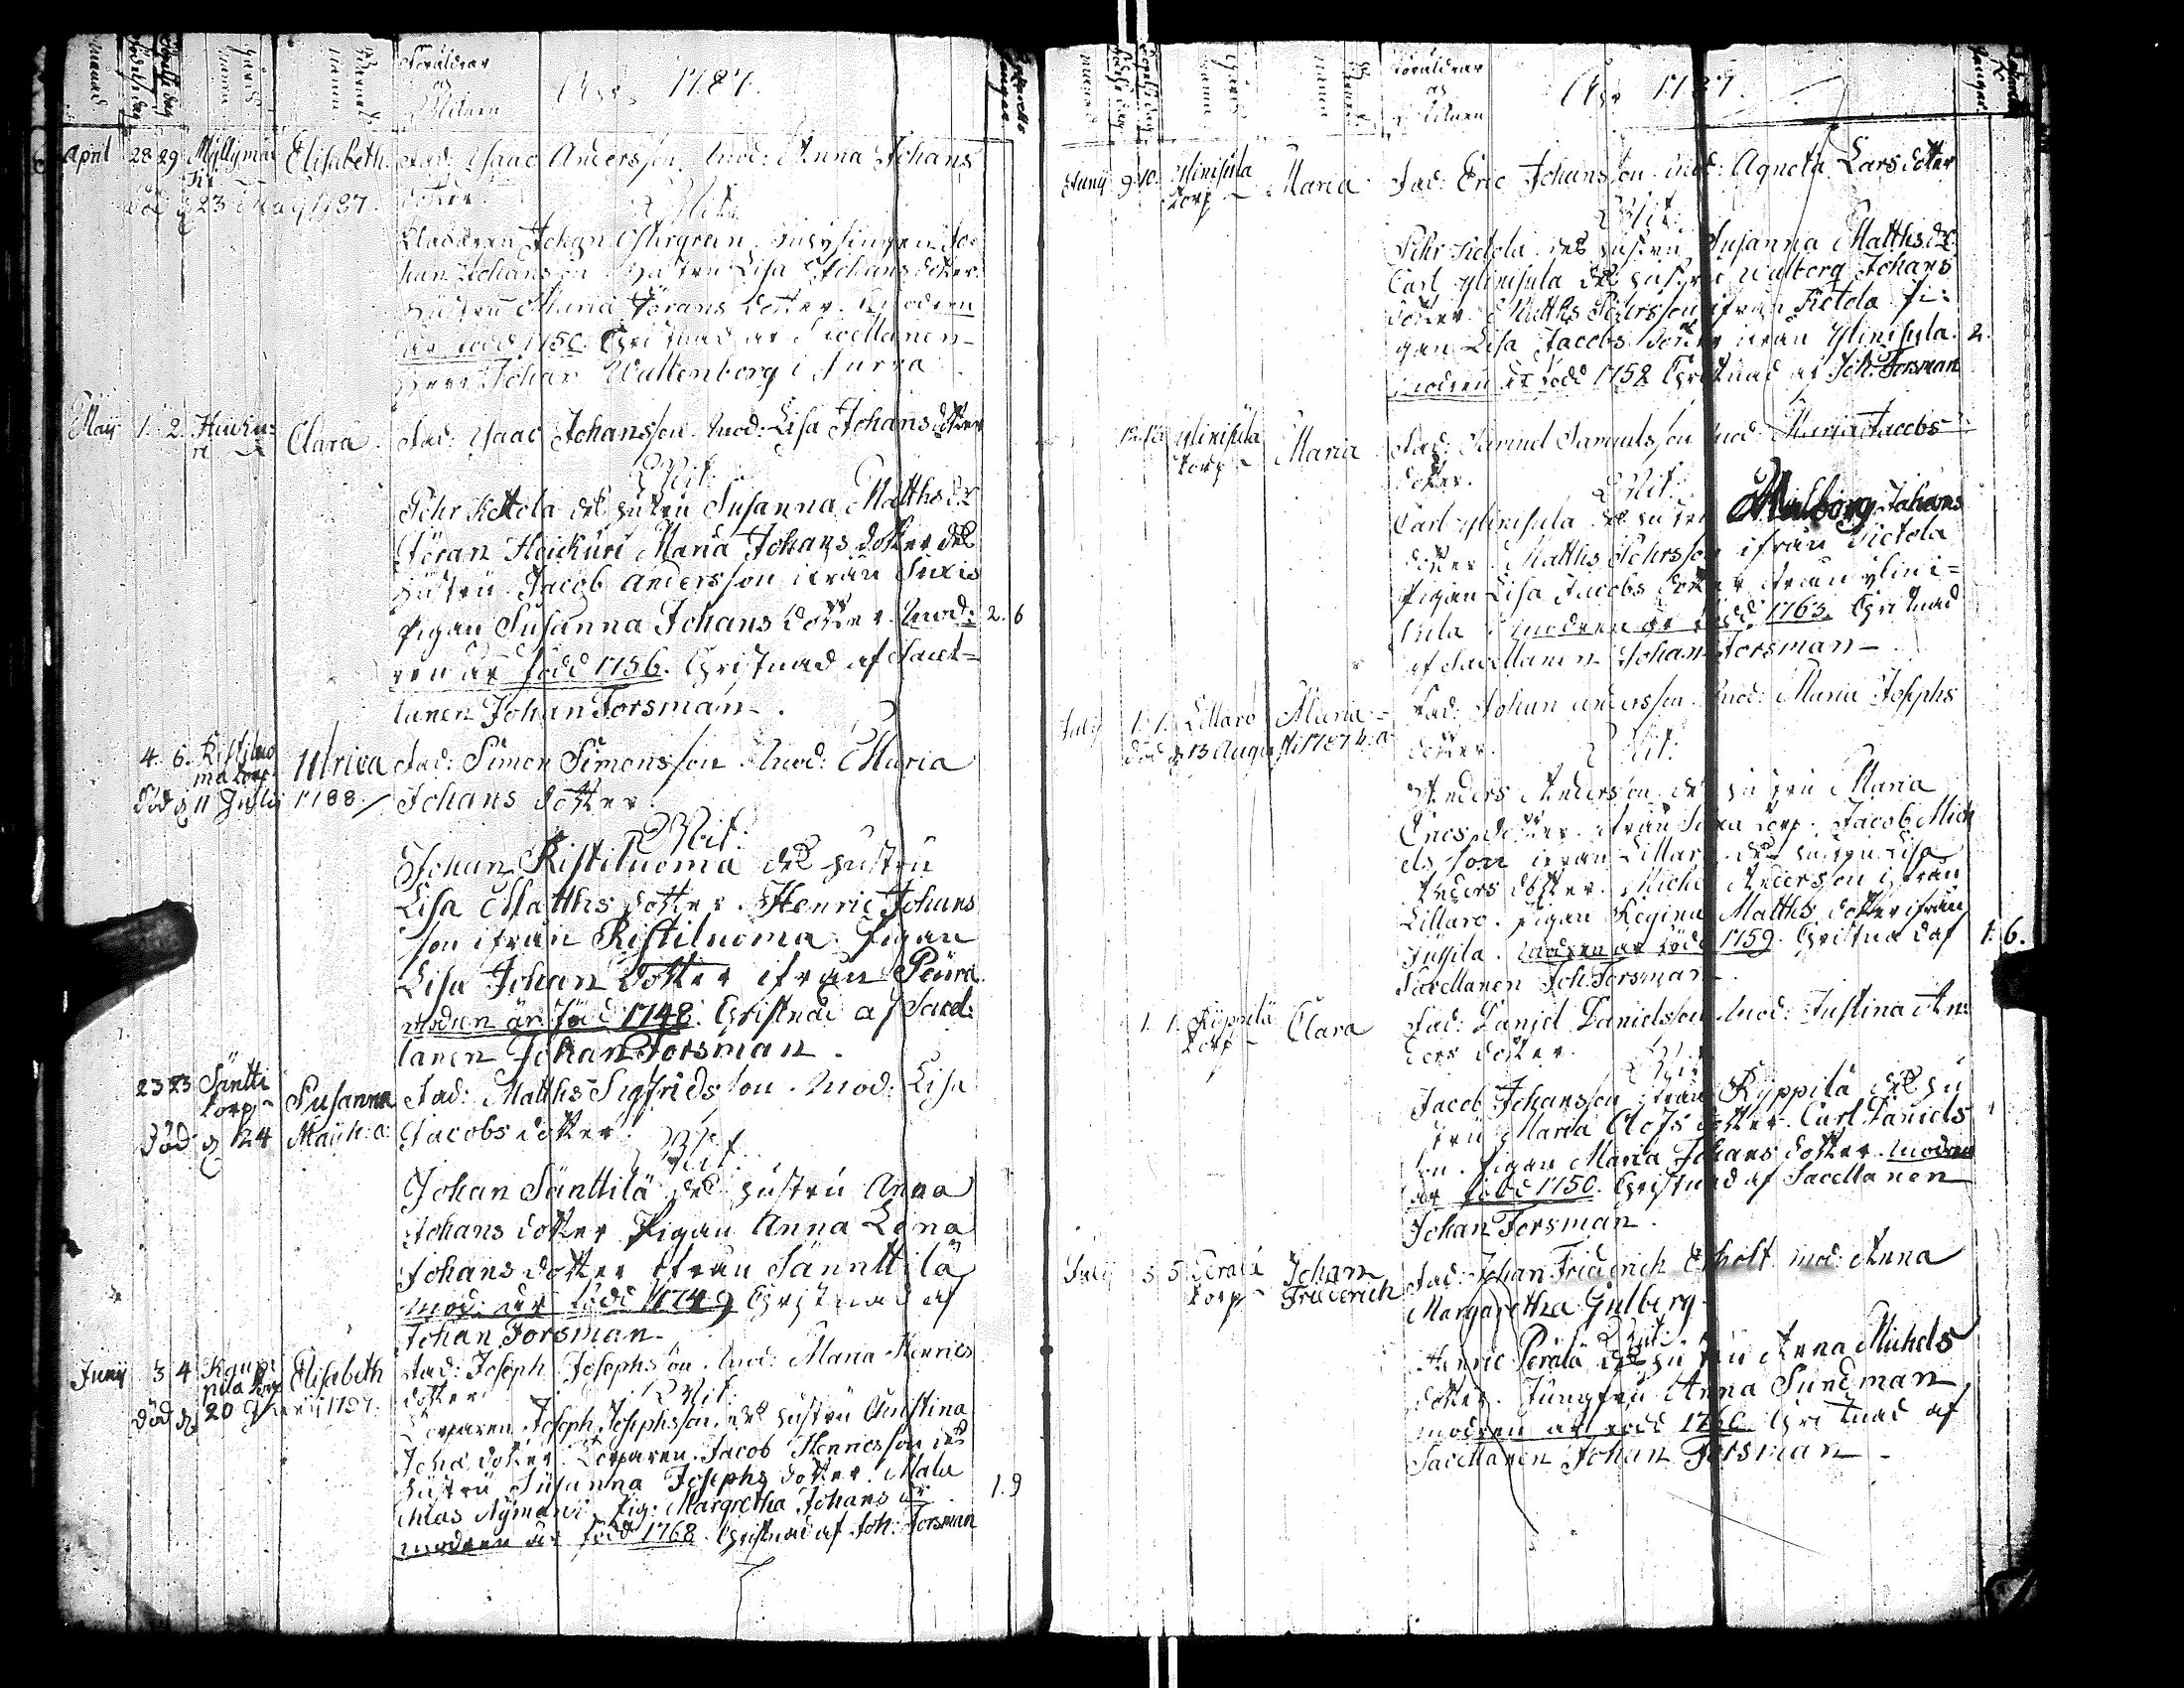 Föräldrar
och
Vittnen
År 1787.
April 28 29 Myllymä Elisabeth. Fad: Isaac Andersson. Mod: Anna Johans
ki
död d 23 Maij 1787. dotter.
Witt:
Johan
han Johansson Hustru Lisa Johans dotter.
Hustru Maria Görans dotter. Modren
är född 1750. Christnad af Sacellanen
Herr Johan Wallenborg i Jurva
Maij 1. 2. Heicku= Clara. Fad: Isaac Johansson. Mod: Lisa Johansdotter
ri
Witt.
Pehr Kettola des hustru Susanna Matthsdr
Göran Heickuri Maria Johans dotter des
hustru. Jacob Andersson ifrån
Pigan Susanna Johans dotter. Mod= 2. 6
ren är född 1756. Christnad af Sacel=
lanen Johan Forsman.
4. 6. Ristiluo Ulrica Fad: Simon Simonsson. Mod: Maria
ma torp
död d 11 Julij 1788. Johans dotter
Witt:
Johan Ristiluoma des hustru
Lisa Matths dotter. Henric Johans
son ifrån Ristiluoma. Pigan
Lisa Johan dotter ifrån Peura.
modren är född 1748. Christnad af Sacel=
lanen Johan Forsman.
23 23 Säntti Susanna Fad: Matths Sigfridsson. Mod: Lisa
torp
död d 24 Maij h: a: Jacobs dotter.
Witt:
Johan Sänttilä des hustru Anna
Johans dotter Pigan Anna Lena
Johans dotter ifrån Sännttilä
Mod: är född 1749 Christnad af
Johan Forsman.
Junij 3 4 Kaup Elisabeth Fad: Joseph Josephsson. Mod: Maria Henrics
pila torp
död d 20 1787. dotter
Witt:
Torparen Joseph Josephsson des hustru Christina
Joha dotter. Torparen Jacob Henricsson des
hustru Susanna Josephs dotter. Mats
Nymani Pig: Margretha Johans dr 1. 9
modren är född 1768. Christnad af Joh: Forsman
Föräldrar
och
Vittnen
År 1787.
Junij 9 10. Ylinisula Maria Fad: Eric Johansson. Mod: Agneta Larsdotter
torp
Witt:
Pehr Kettola des hustru Susanna Matthsdr.
Carl Ylinisula des hustru Walborg Johans
dotter. Matths Pehrsson ifrån Kettola Pi=
gan Lisa Jacobs dotter ifrån Ylinisula. 2.
modren är född 1752 Christnad af Joh. Forsman
12 13 Ylinisula Maria Fad: Samuel Samuelsson Mod: Maria Jacobs
torp
dotter. Witt:
Carl Ylinisula des hustru Walborg Johans
dotter. Matths Pehrsson ifrån Kettola
Pigan Lisa Jacobs dotter ifrån Ylini=
sula. modren är född 1763. Christnad
af Sacellanen Johan Forsman
July 1. 1. Lillaro Maria Fad: Johan Andersson. Mod: Maria Josephs
död d 13 Augusti 1787 h: a: dotter. Witt:
Anders Anderson des hustru Maria
Erics dotter. ifrån torp. Jacob Mich
elsson ifrån Lillaro des hustru Lisa
Anders dotter. Michel Anderson ifrån
Lillaro. Pigan Regina Matths dotter ifrån
Jussila. modren är född 1759. Christnad af 1. 6.
Sacellanen Joh. Forsman.
1. 1. Ryppilä Clara Fad: Daniel Danielsson Mod: Justina An=
torp
ders dotter.
Witt:
Jacob Johansson ifrån Ryppilä des hu
stru Maria Olofs dotter. Carl Daniels
son. Pigan Maria Johans dotter. modren
är född 1750. Christnad af Sacellanen
Johan Forsman.
Julij 5 5 Perälä Johan Fad: Johan Friderich Mod: Anna
torp Friderich
Margaretha Gulberg.
Witt:
Henric Perälä des hustru Anna Michels
dotter. Jungfru Anna Sundman
modren är född 1760. Christnad af
Sacellanen Johan Forsman